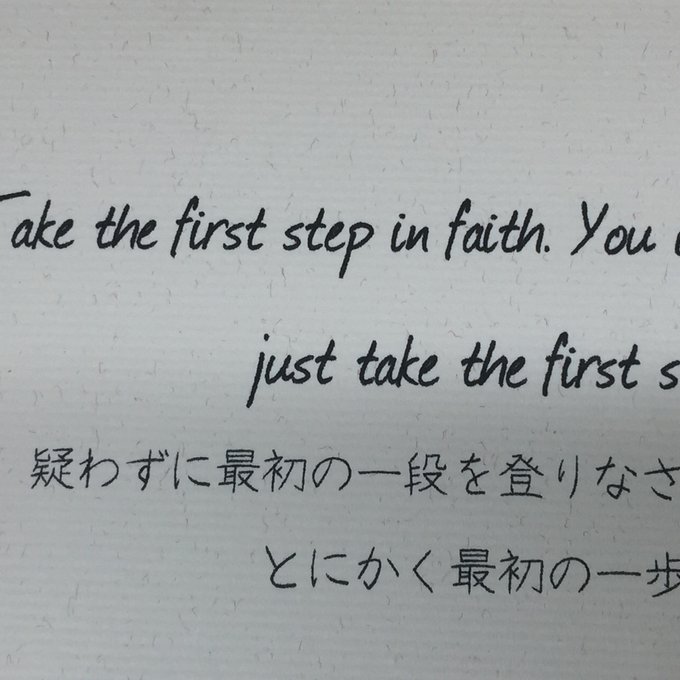 Take the first step in faith. You
just take the first s
疑わずに最初の一段を登りなさ
とにかく最初の一歩